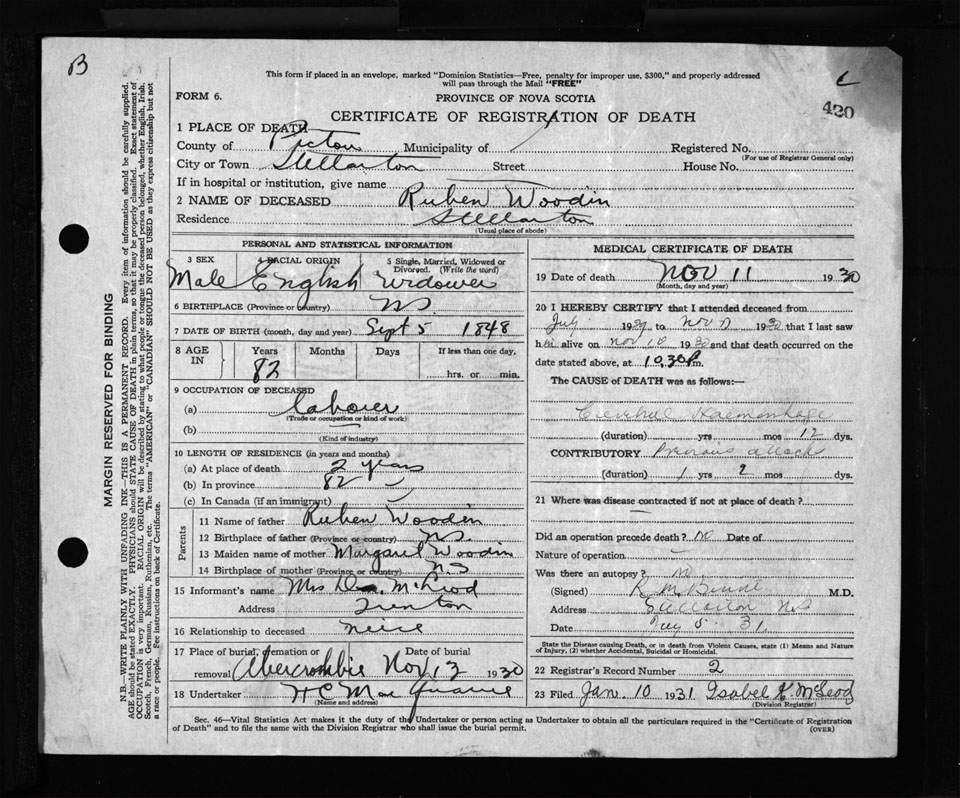 B
This form if placed in an envelope, marked "Dominion Statistics—Free, penalty for improper use, $300," and properly addressed
will pass through the Mail "FREE"
FORM 6.
PROVINCE OF NOVA SCOTIA
420
CERTIFICATE OF REGISTRATION OF DEATH
1 PLACE OF DEATH
County of Pictou Municipality of Registered No.
(For use of Registrar General only)
City or Town Stellarton Street House No.
If in hospital or institution, give name
2 NAME OF DECEASED Ruben Woodin
Residence Stellarton
(Usual place of abode)
PERSONAL AND STATISTICAL INFORMATION
3 SEX 4 RACIAL ORIGIN 5 Single, Married, Widowed or
Divorced. (Write the word)
Male English Widower
6 BIRTHPLACE (Province or country) N.S.
7 DATE OF BIRTH (month, day and year) Sept 5 1848
8 AGE IN Years Months Days If less than one day,
82 hrs. or min.
9 OCCUPATION OF DECEASED
(a) laborer
(Trade or occupation or kind of work)
(b)
(Kind of industry)
10 LENGTH OF RESIDENCE (in years and months)
(a) At place of death 2 years
(b) In province 82
(c) In Canada (if an immigrant)
Parents
11 Name of father Ruben Woodin
12 Birthplace of father (Province or country) N.S.
13 Maiden name of mother Margaret Woodin
14 Birthplace of mother (Province or country) N.S
15 Informant's name Mrs McLeod
Address Trenton
16 Relationship to deceased neice
17 Place of burial, cremation or Date of burial
removal Abercrombie Nov 13 1930
18 Undertaker H C MacQuarrie
(Name and address)
MEDICAL CERTIFICATE OF DEATH
19 Date of death Nov 11 1930
(Month, day and year)
20 I HEREBY CERTIFY that I attended deceased from
July 1929 to Nov 1930 that I last saw
h alive on Nov 10 1930 and that death occurred on the
date stated above, at 10.30 P.m.
The CAUSE of DEATH was as follows:—
Cerebral Haemorrhage
(duration) yrs mos 12 dys.
CONTRIBUTORY Previous attack
(duration) 1 yrs 2 mos dys.
21 Where was disease contracted if not at place of death?
Did an operation precede death? no Date of
Nature of operation
Was there an autopsy?
(Signed) M.D.
Address Stellarton N.S
Date 5 31
State the Disease causing Death, or in death from Violent Causes, state (1) Means and Nature
of Injury, (2) whether Accidental, Suicidal or Homicidal.
22 Registrar's Record Number 2
23 Filed Jan. 10 1931 Isabel K McLeod
(Division Registrar)
Sec. 46—Vital Statistics Act makes it the duty of the Undertaker or person acting as Undertaker to obtain all the particulars required in the "Certificate of Registration
of Death" and to file the same with the Division Registrar who shall issue the burial permit.
(OVER)
MARGIN RESERVED FOR BINDING
N.B.—WRITE PLAINLY WITH UNFADING INK—THIS IS A PERMANENT RECORD. Every item of information should be carefully supplied.
AGE should be stated EXACTLY. PHYSICIANS should STATE CAUSE OF DEATH in plain terms, so that it may be properly classified. Exact statement of
OCCUPATION is very important. RACIAL ORIGIN will be described by stating to what people or tongue the deceased person belonged, whether English, Irish,
Scotch, French, German, Russian, Ruthenian, etc. The terms "AMERICAN" or "CANADIAN" SHOULD NOT BE USED as they express citizenship but not
a race or people. See instructions on back of Certificate.